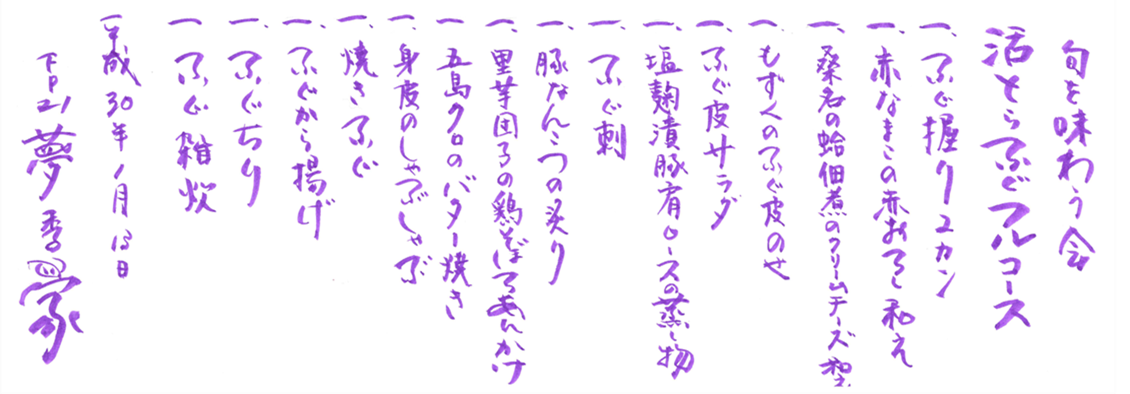 旬を味わう会
活とらふぐフルコース
一、ふぐ握り2カン
一、赤なまこの赤おろし和え
一、桑名の蛤佃煮のクリームチーズ和え
一、もずくのふぐ皮のせ
一、ふぐ皮サラダ
一、塩麹漬豚肩ロースの蒸し物
一、ふぐ刺
一、豚なんこつの炙り
一、里芋団子の鶏そぼろあんかけ
一、五島クロのバター焼き
一、身皮のしゃぶしゃぶ
一、焼きふぐ
一、ふぐから揚げ
一、ふぐちり
一、ふぐ雑炊
平成30年1月13日
下戸21夢季家